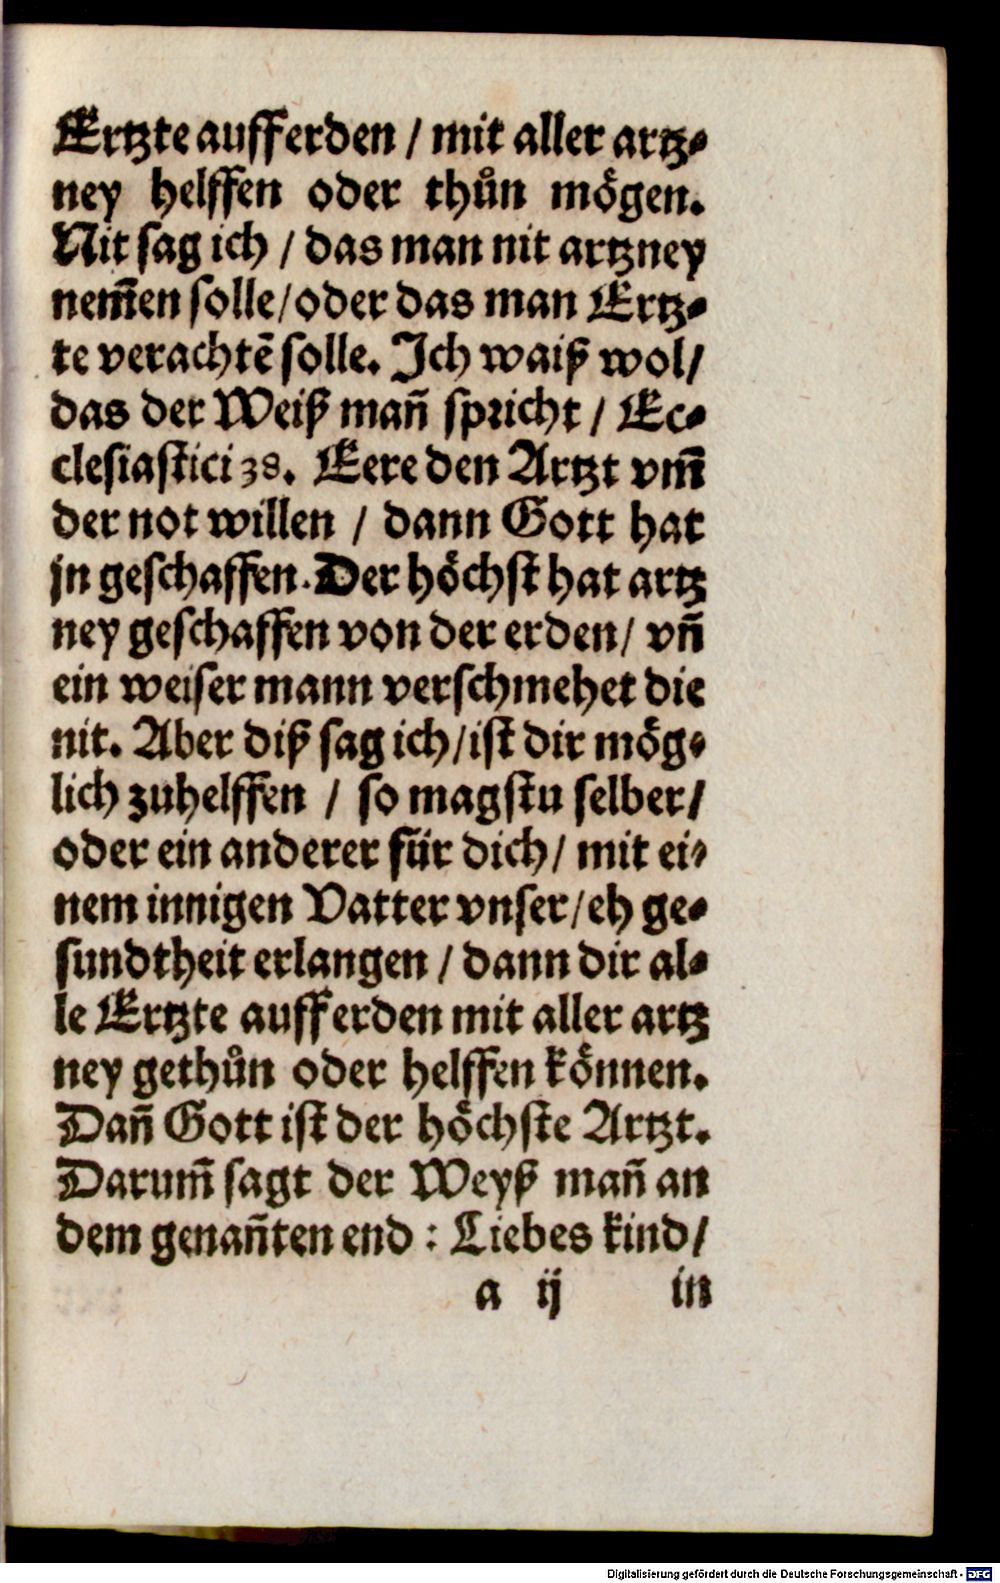 Ertzte aufferden / mit aller artz⸗
ney helffen oder thůn mögen.
Nit sag ich / das man nit artzney
nem̃en solle / oder das man Ertz⸗
te verachtẽ solle. Ich waiß wol /
das der Weiß mañ spricht / Ec⸗
clesiastici 38. Eere den Artzt vm̃
der not willen / dann Gott hat
jn geschaffen. Der höchst hat artz
ney geschaffen von der erden / vñ
ein weiser mann verschmehet die
nit. Aber diß sag ich / ist dir mög⸗
lich zuhelffen / so magstu selber /
oder ein anderer für dich / mit ei⸗
nem innigen Vatter vnser / eh ge⸗
sundtheit erlangen / dann dir al⸗
le Ertzte aufferden mit aller artz
ney gethůn oder helffen können.
Dañ Gott ist der höchste Artzt.
Darum̃ sagt der Weyß mañ an
dem genañten end : Liebes kind /
a ij in
Digitalisierung gefördert durch die Deutsche Forschungsgemeinschaft - DFG